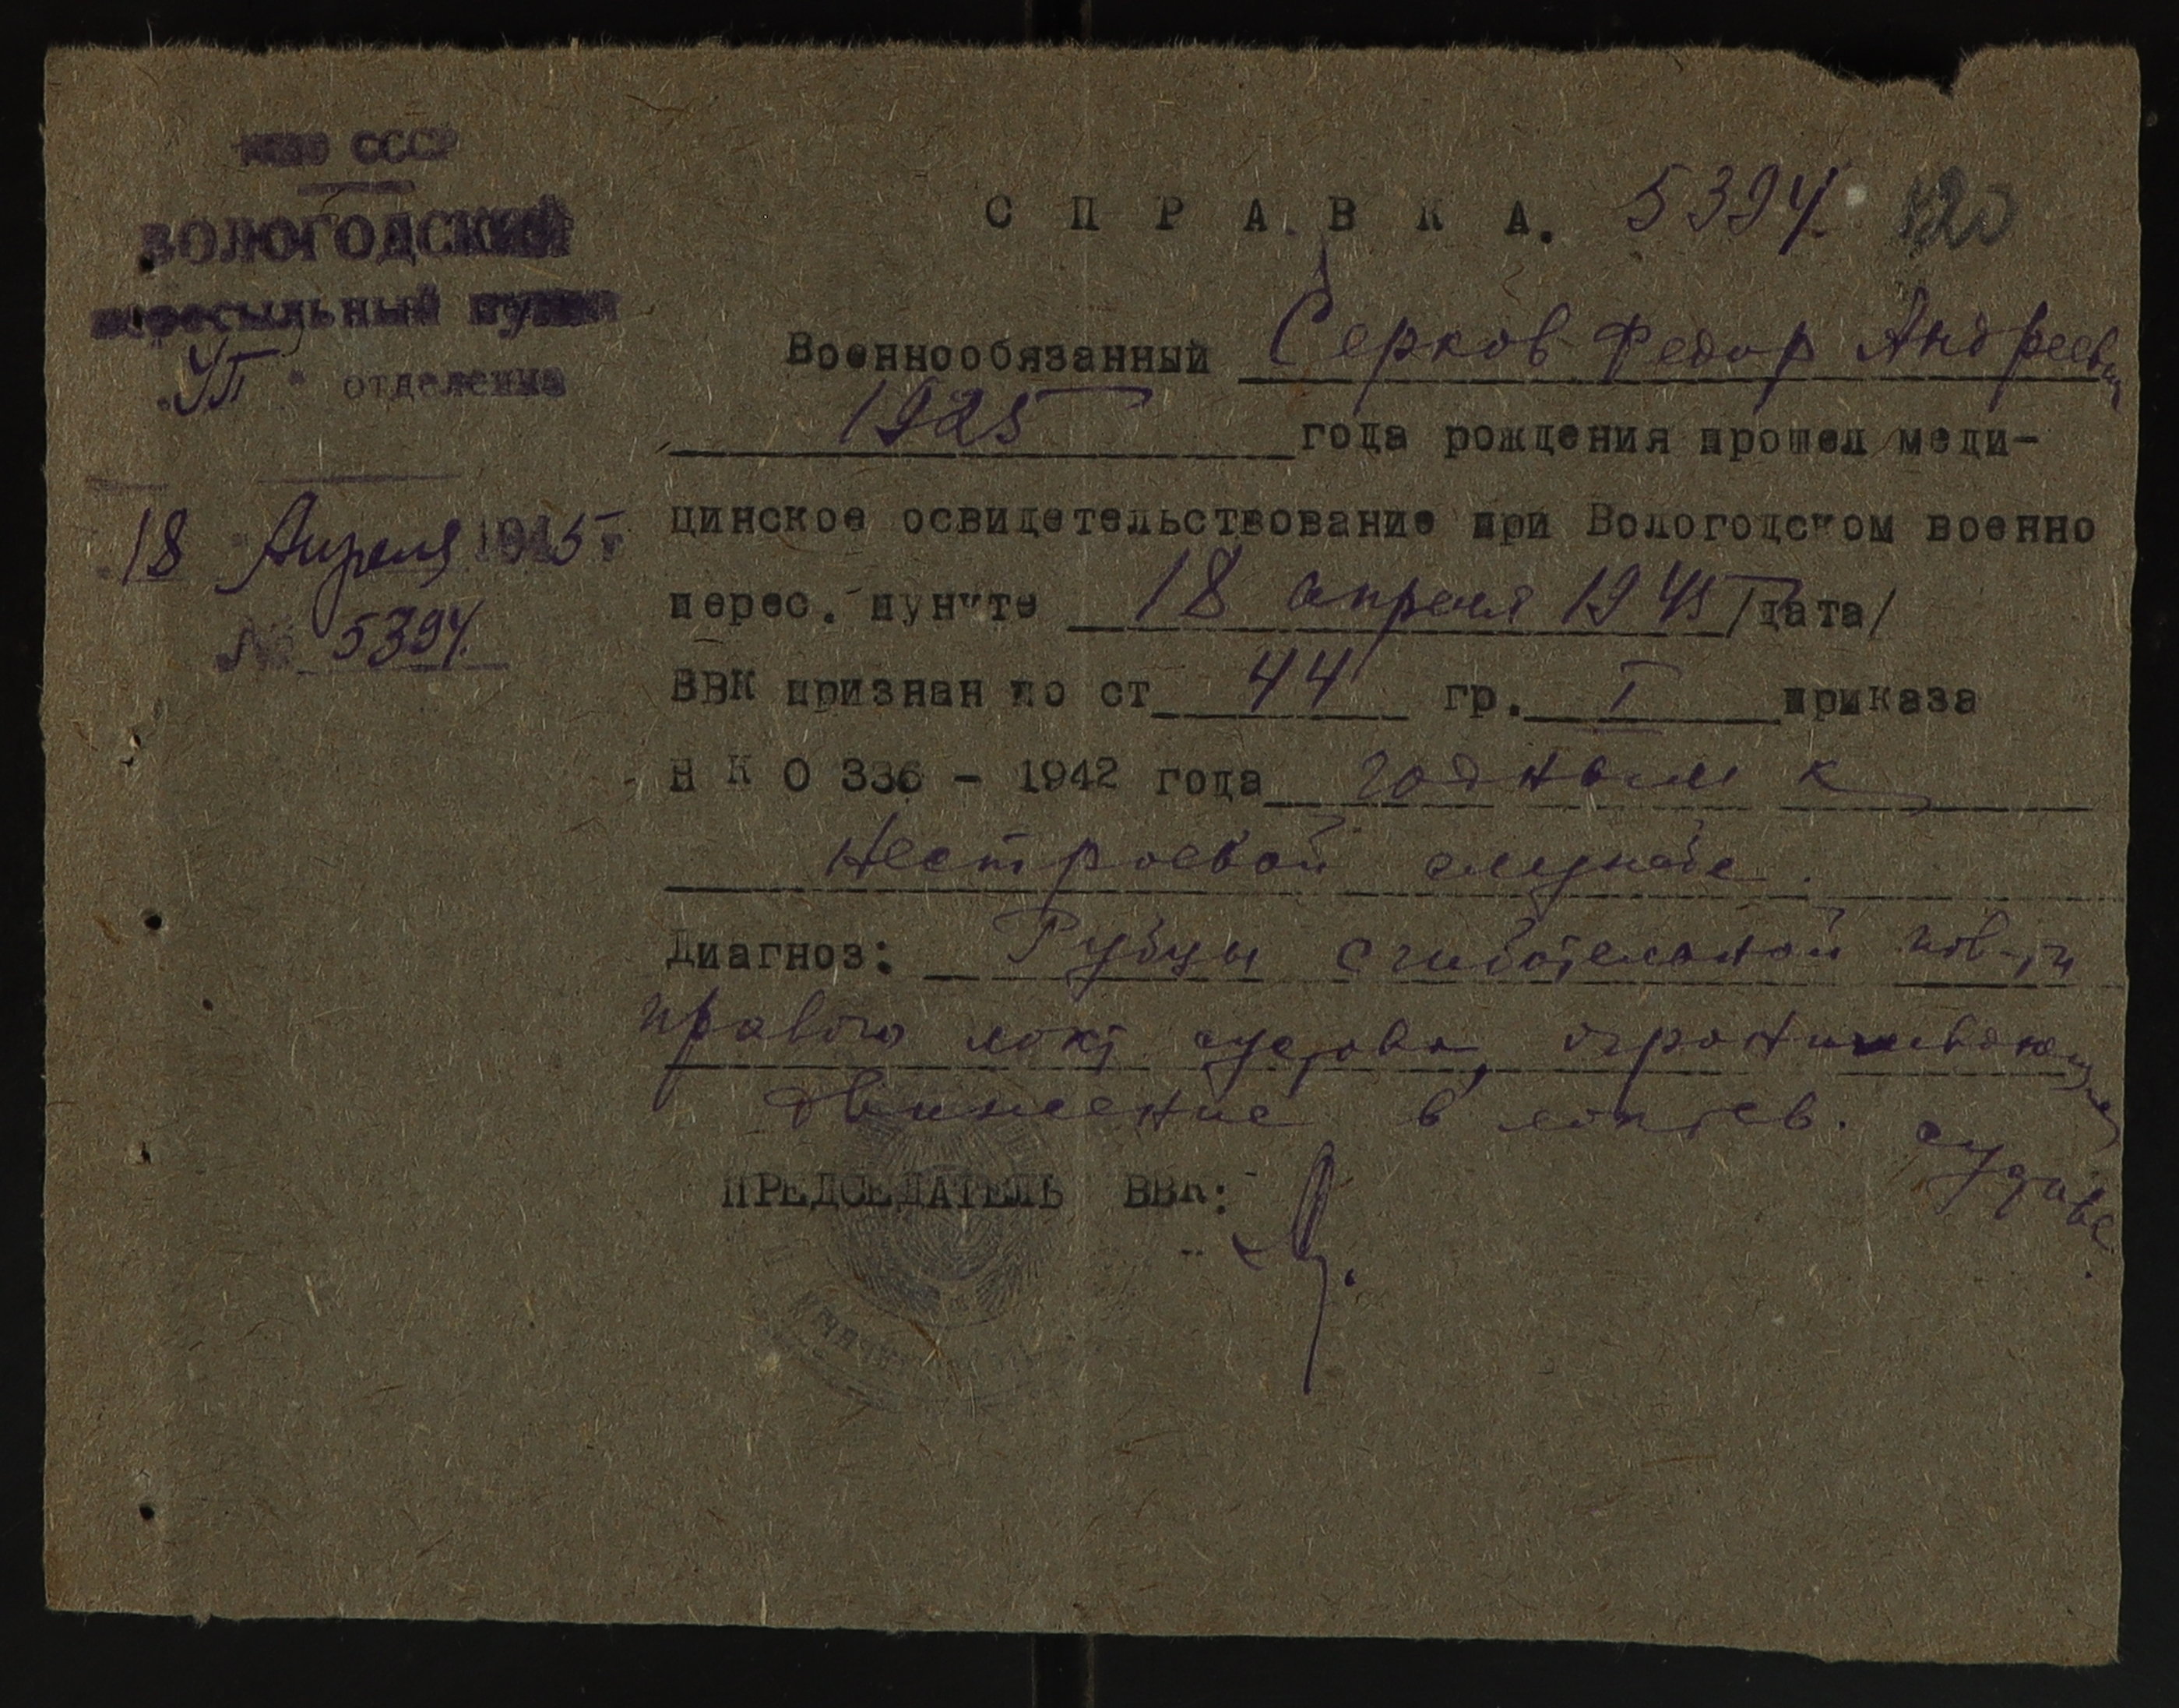 НКВО СССР
ВОЛОГОДСКИЙ
пересыльный пункт
"УП" отделение
18 " Апреля 1945 г
№ 5394.
С П Р А В К А. 5394 120
Военнообязанный Серков Федор Андреевич
1925 года рождения прошел меди-
цинское освидетельствование при Вологодском военно
перес. пункте 18 апреля 1945 г /дата/
ВВК признан по ст 44 гр. I приказа
Н К О 336 - 1942 года годным к
нестроевой службе.
Диагноз: Рубцы сгибательной пов-ти
правого локт сустава, ограничивающие
движение в локтев. суставе.
ПРЕДСЕДАТЕЛЬ ВВК: